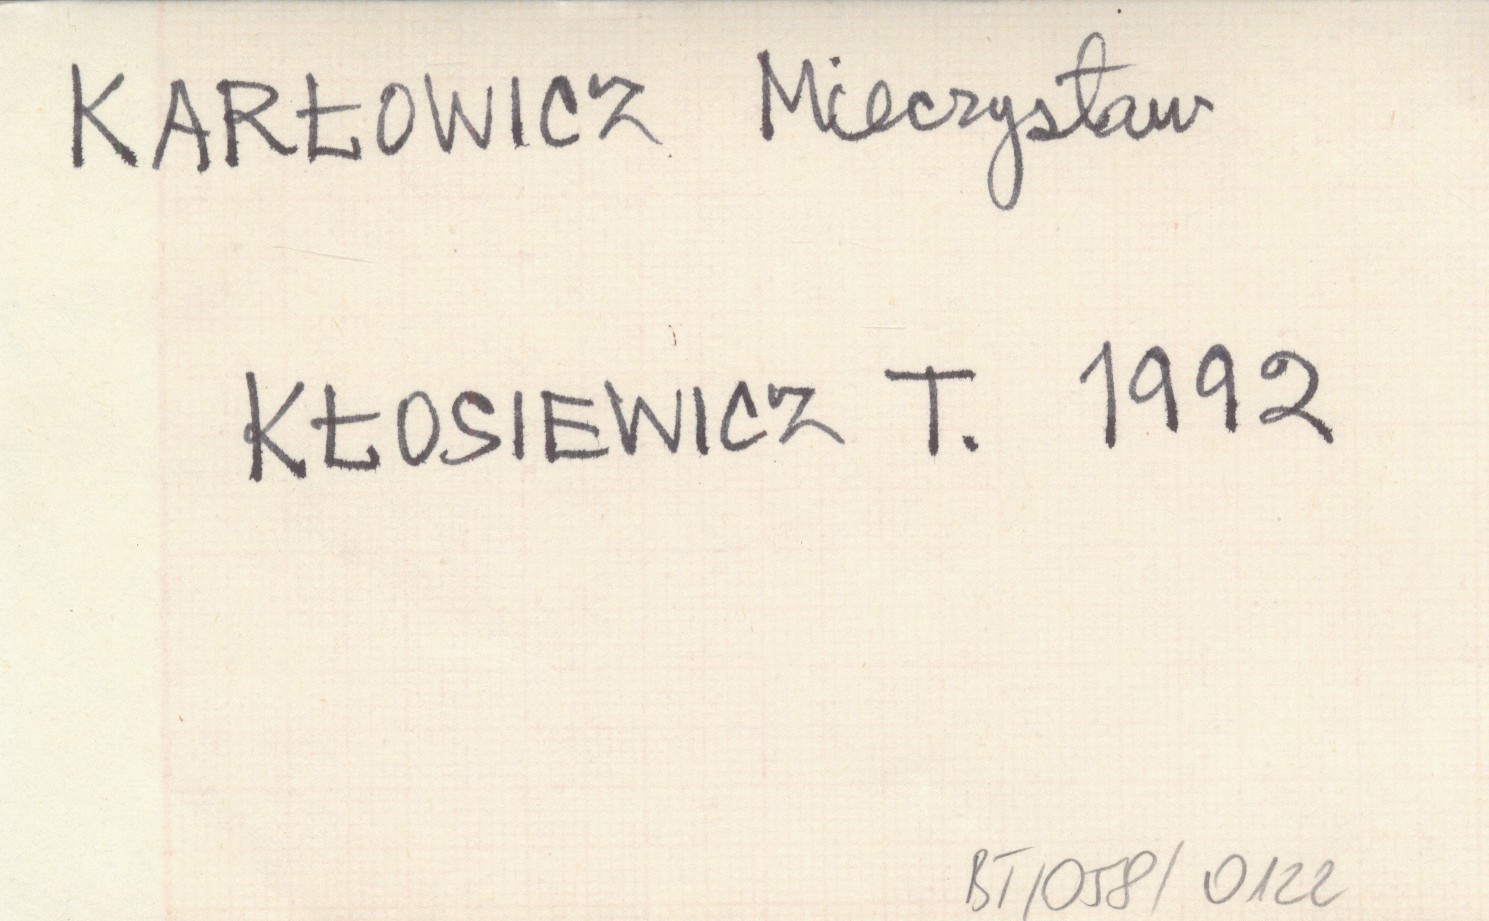 KARŁOWICZ Mieczysław
KŁOSIEWICZ T. 1992
BT/058/0122